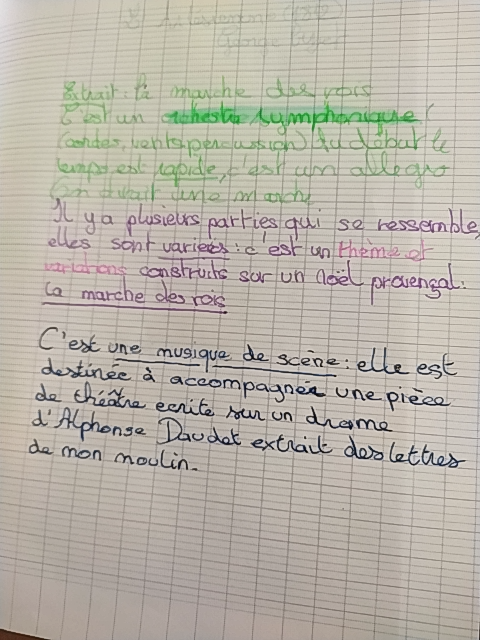 Extrait: la marche des rois
C'est un orchestre symphonique
(cordes, vents, percussion) Au début le
temps est rapide, c'est un allegro
On dirait une marche
Il y a plusieurs parties qui se ressemble,
elles sont variées : c'est un thème et
variations construits sur un noël provençal:
la marche des rois
C'est une musique de scène : elle est
destinée à accompagnée une pièce
de théâtre ecrite sur un drame
d'Alphonse Daudet extrait des lettres
de mon moulin.